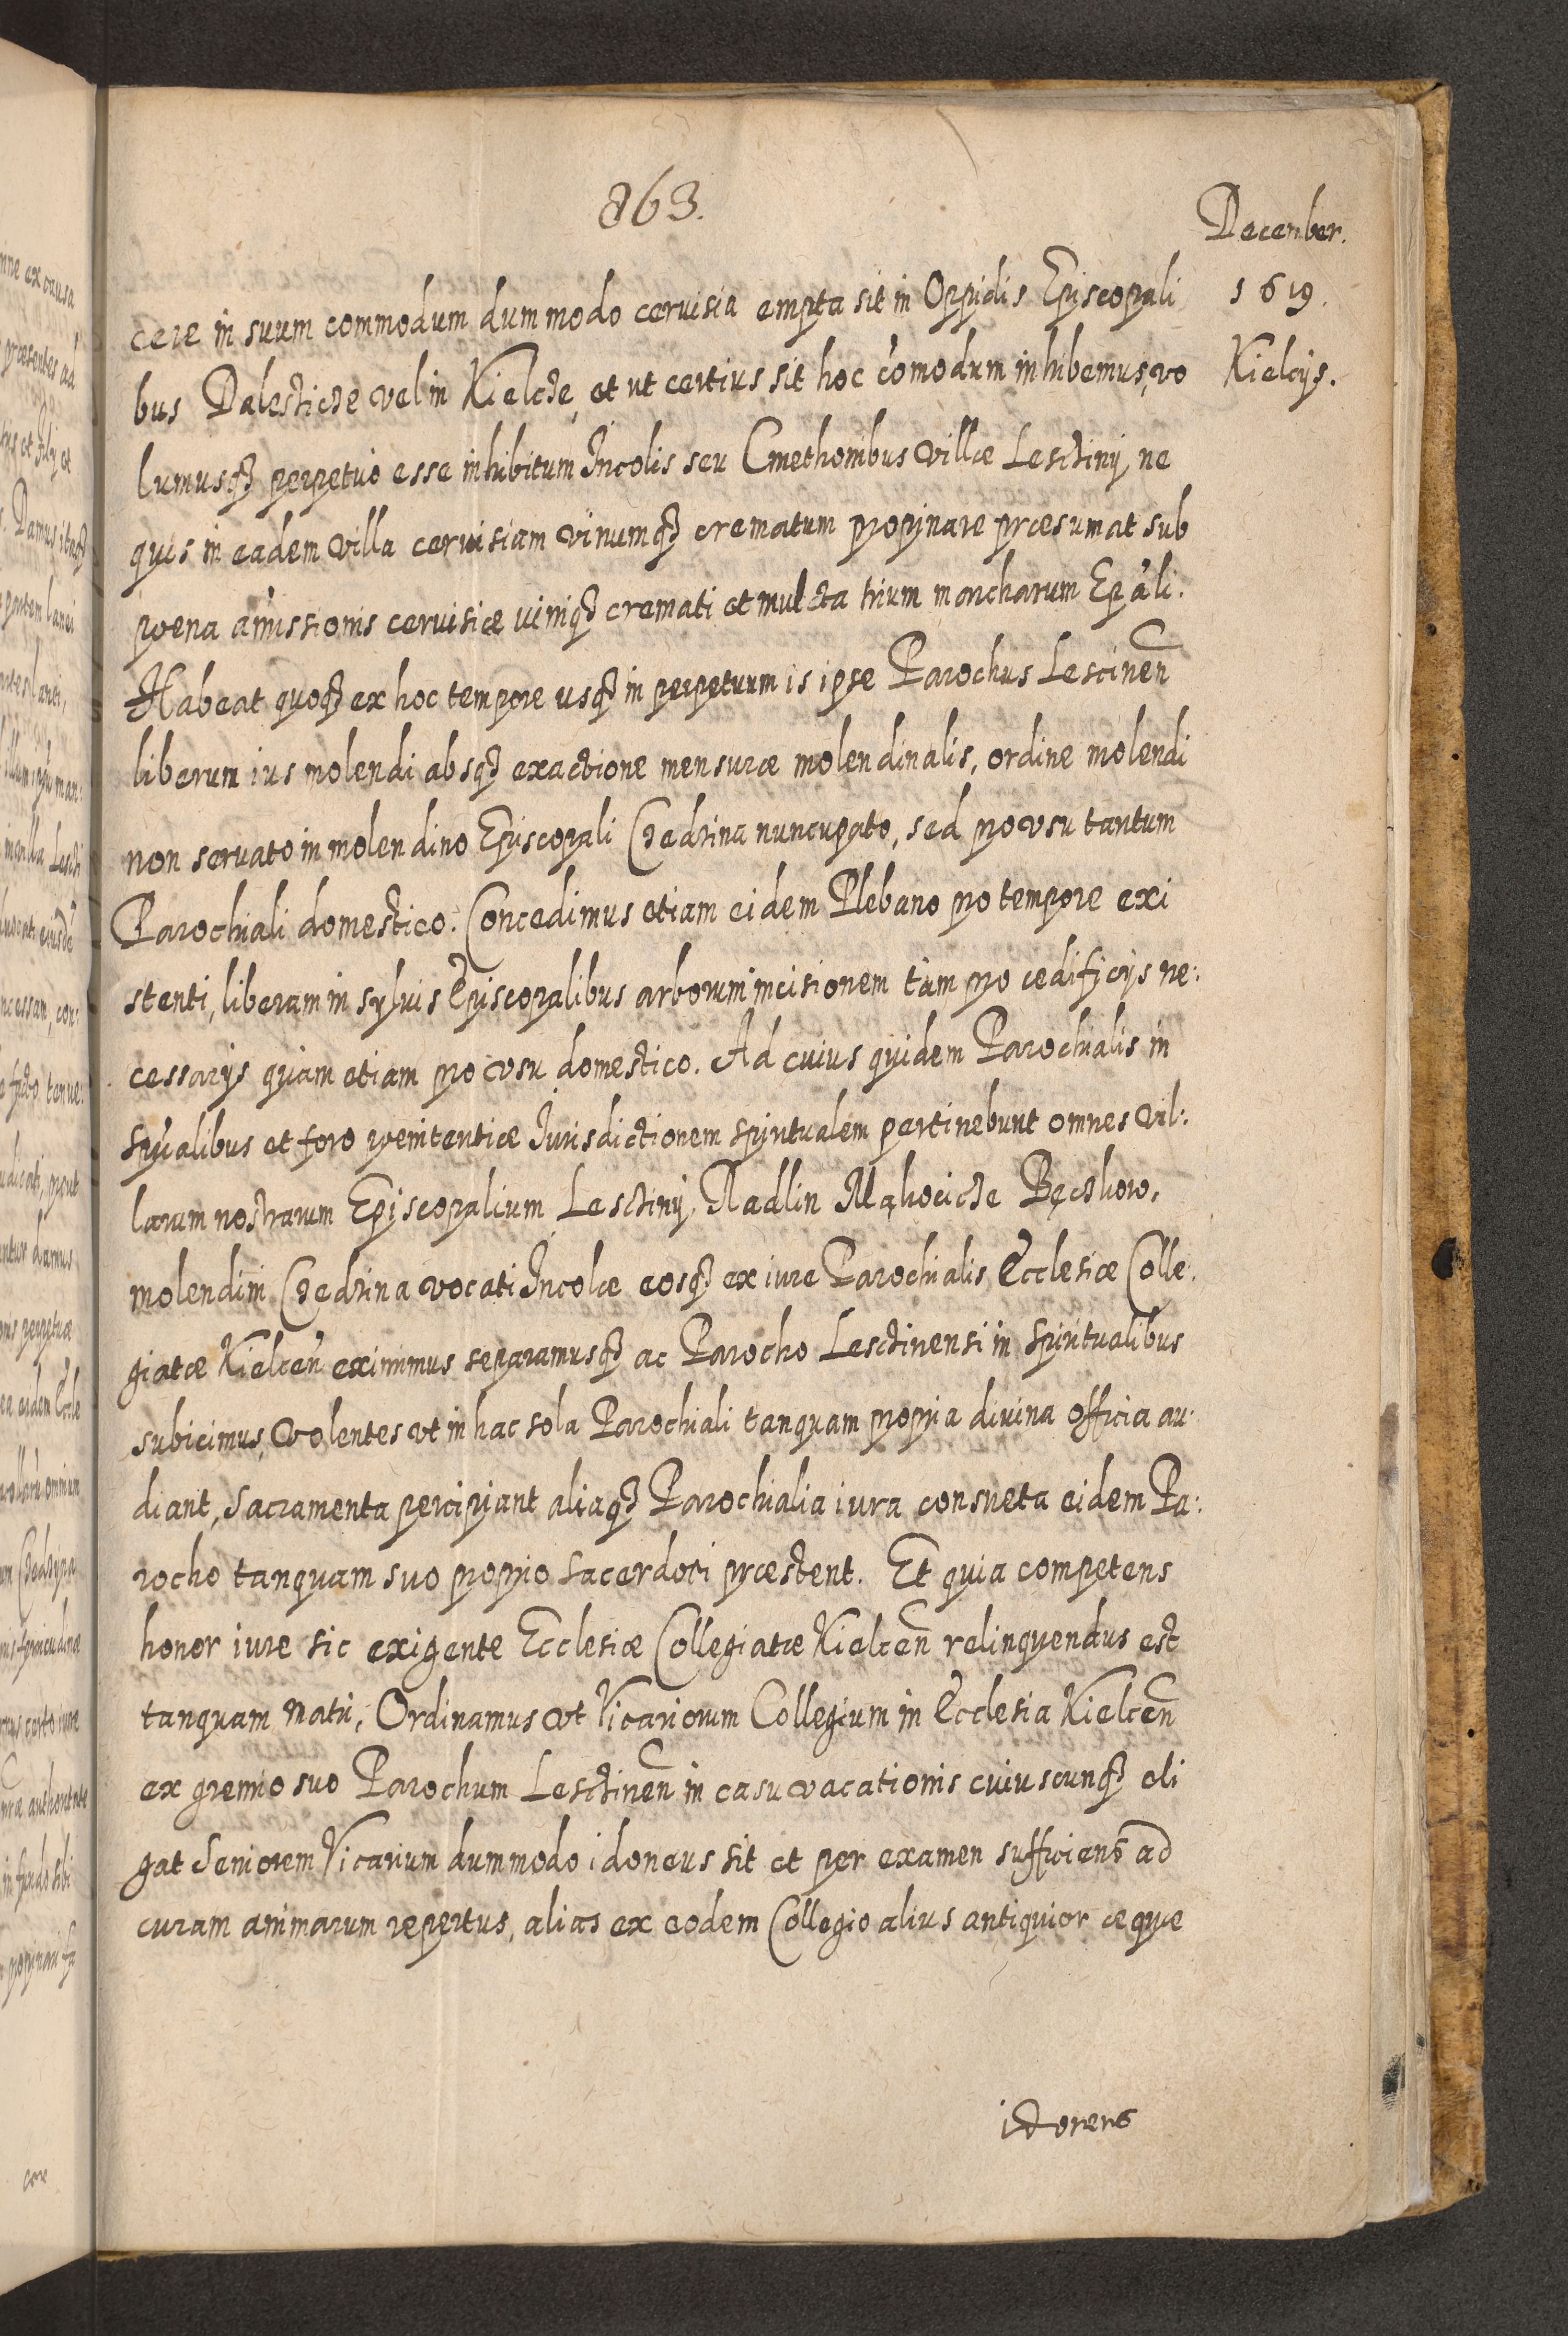 863.
December.
1619.
Kielcijs.
cere in suum commodum dummodo cervisia empta sit in Oppidis Episcopali
bus Dalesticze vel in Kielcze, et ut certius sit hoc com̄odum inhibemus, vo
lumusq₃ perpetuo esse inhibitum Incolis seu Cmethonibus villæ Lesctiny, ne
quis in eadem villa cervisiam vinumq₃ crematum propinare præsumat sub
pœna amissionis cervisiæ viniq₃ cremati et mulcta trium marcharum Ep̄ali.
Habeat quoq₃ ex hoc tempore usq₃ in perpetuum is ipse Parochus Lescinen̄
liberum ius molendi absq₃ exactione mensuræ molendinalis, ordine molendi
non servato in molendino Episcopali Czedzina nuncupato, sed pro usu tantum
Parochiali domestico. Concedimus etiam eidem Plebano pro tempore exi
stenti, liberam in sylvis Episcopalibus arborum incisionem tam pro ædificijs ne:
cessarijs quam etiam pro usu domestico. Ad cuius quidem Parochialis in
sp̄ualibus et foro pœnitentiæ Iurisdictionem spiritualem pertinebunt omnes Vil:
larum nostrarum Episcopalium Lesctiny, Radlin Mąhocicze Bęczkow,
molendini Czedzina vocati Incolæ eosq₃ ex iure Parochialis Ecclesiæ Colle:
giatæ Kielcen̄ eximimus separamusq₃ ac Parocho Lesctinensi in Spiritualibus
subicimus, Volentes ut in hac sola Parochiali tanquam propria divina officia au:
diant, Sacramenta percipiant aliaq₃ Parochialia iura consueta eidem Pa:
rocho tanquam suo proprio Sacerdoti præstent. Et quia competens
honor iure sic exigente Ecclesiæ Collegiatæ Kielcen̄ relinquendus est
tanquam Matri, Ordinamus ut Vicariorum Collegium in Ecclesia Kielcen̄
ex gremio suo Parochum Lesctinen̄ in casu vacationis cuiuscunq₃ eli
gat Seniorem Vicarium dummodo idoneus sit et per examen sufficiens ad
curam animarum repertus, alias ex eodem Collegio alius antiquior æque
idoneus